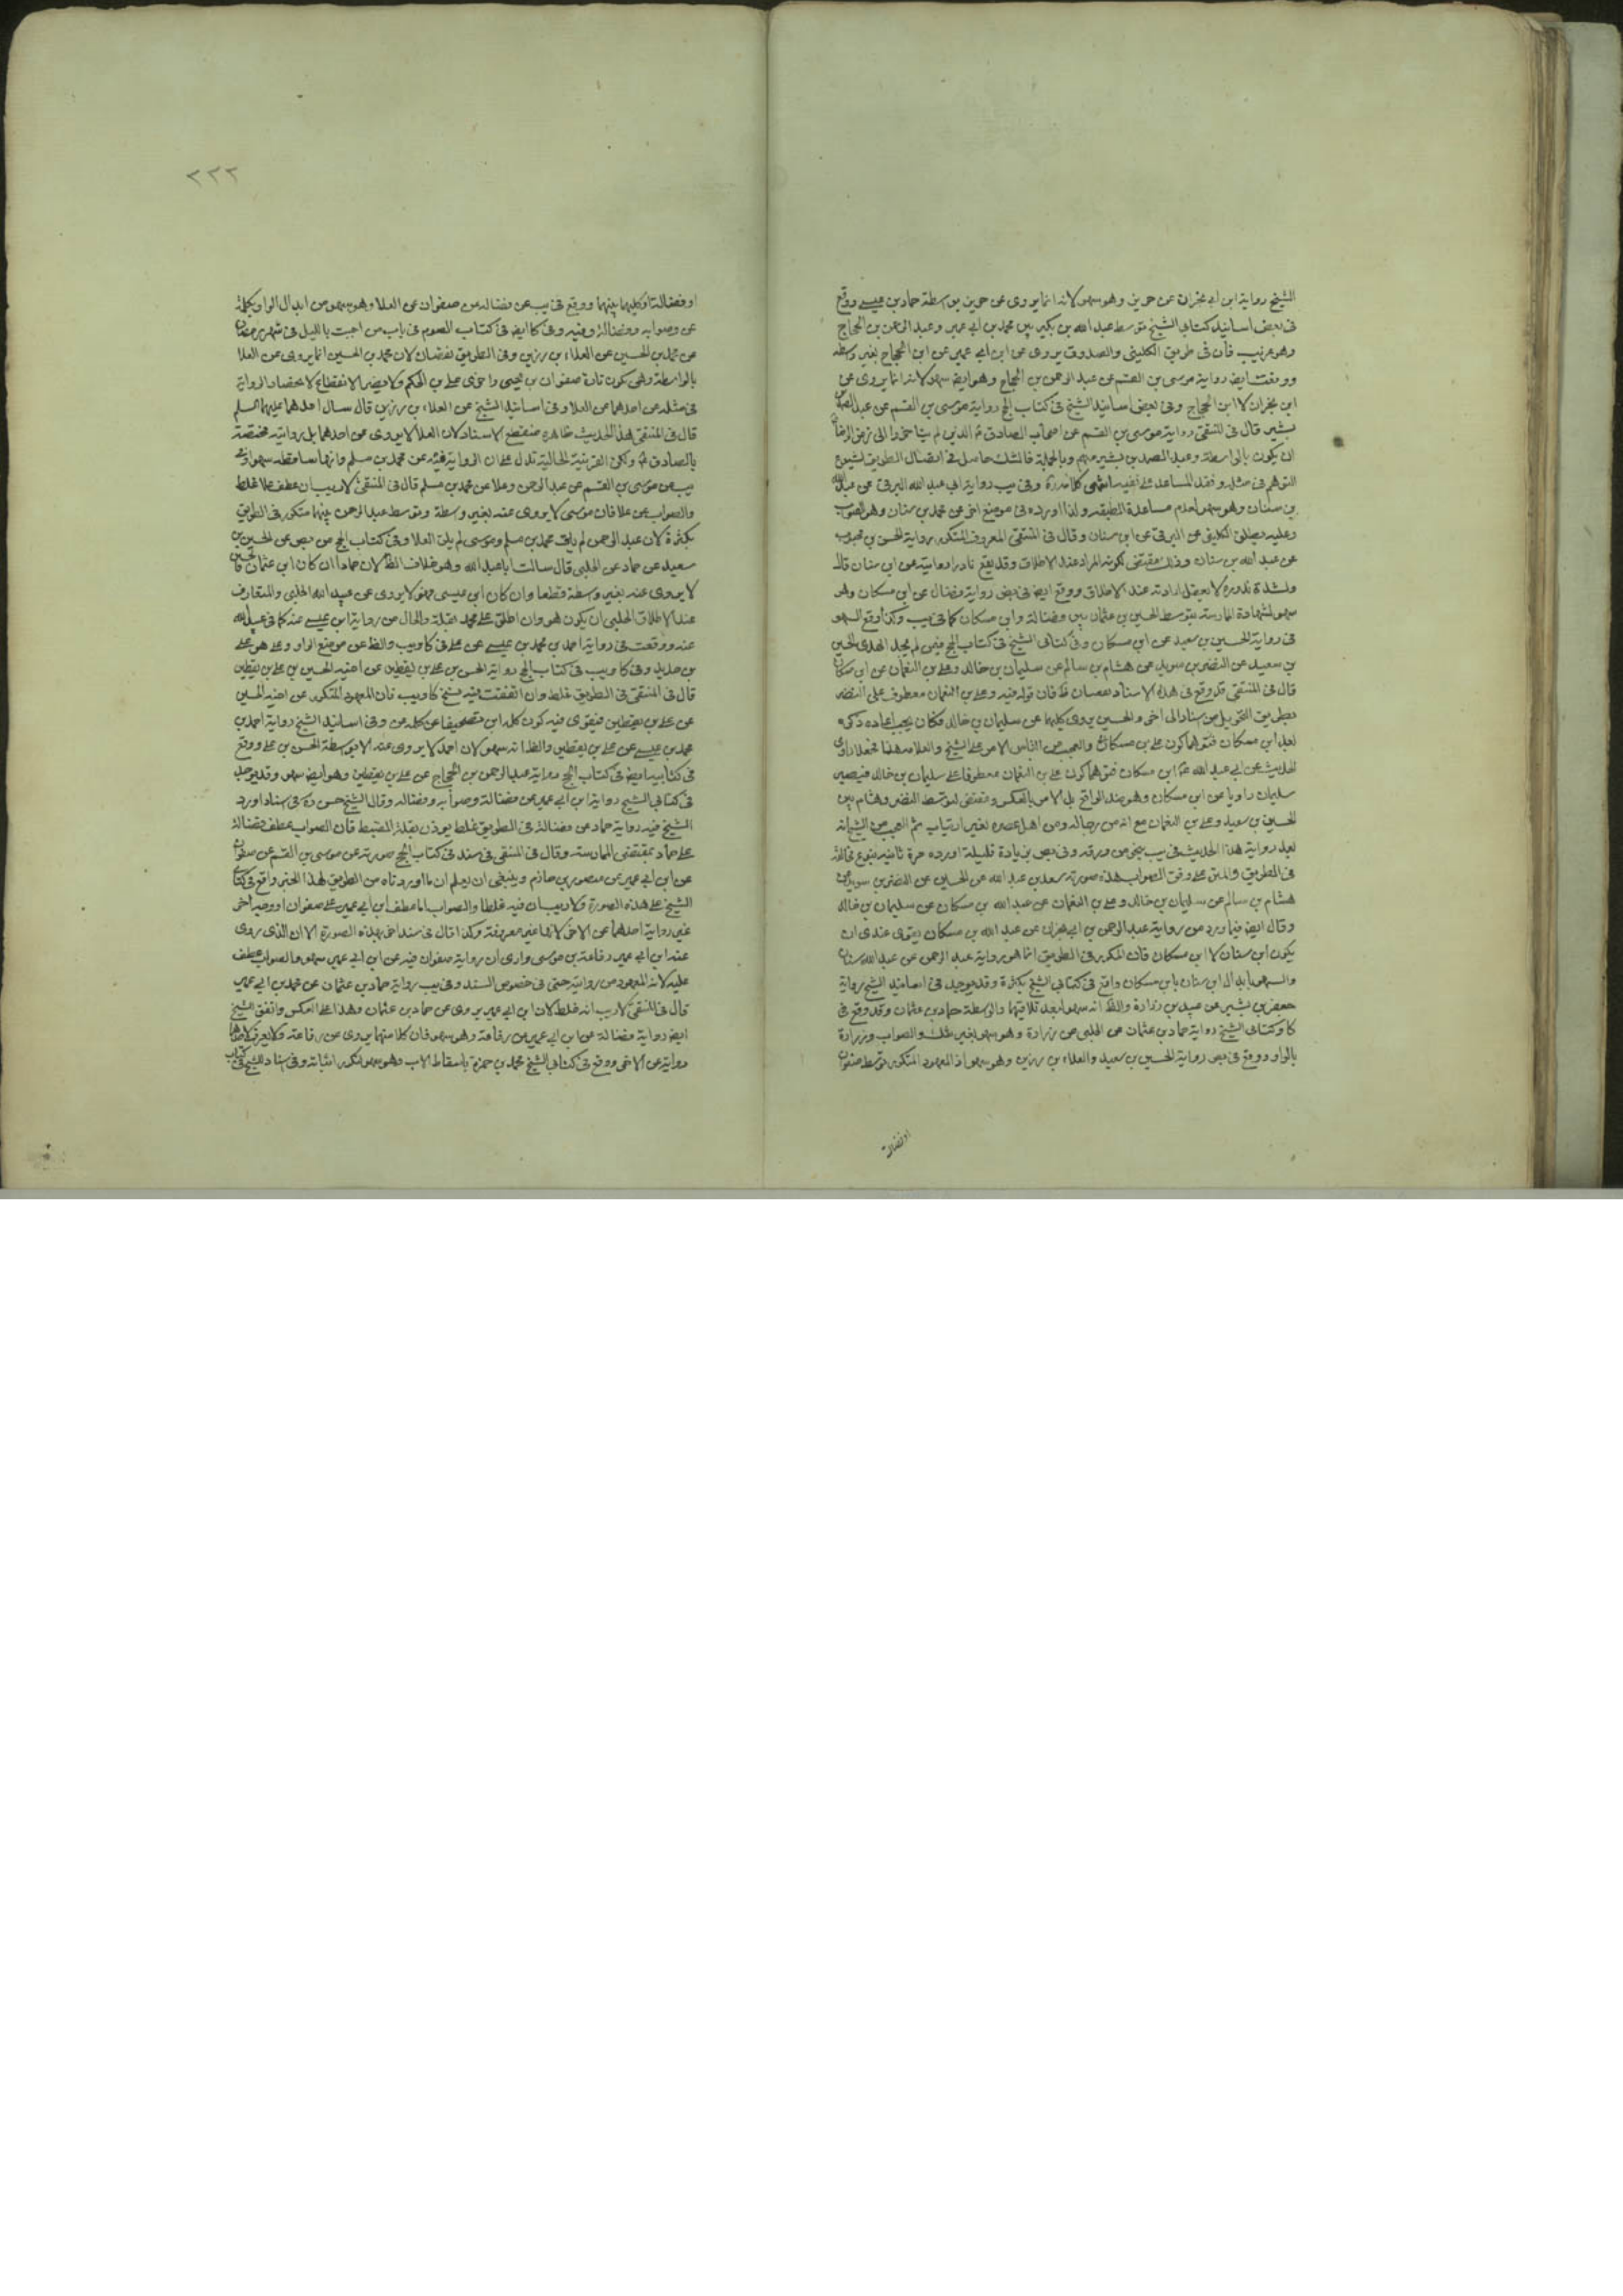 الشيخ رواية ابن ابي نجران عن حريز وهو سهو لانه انما يروى عن حريز بواسطة حماد بن عيسى ووقع
فى بعض اسانيد كتابى الشيخ توسط عبد الله بن بكير بين محمد بن ابى عمير وعبد الرحمن بن الحجاج
وهو غريب فان فى طريق الكلينى والصدوق يروى عن ابن ابى عمير عن ابن الحجاج بغير واسطه
ووقعت ايض رواية موسى بن القسم عن عبد الرحمن بن الحجاج وهو ايض سهو لانه انما يروى عن
ابن نجران لا ابن الحجاج وفى بعض اسانيد الشيخ فى كتاب الحج رواية موسى بن القسم عن عبد الصمد بن
بشير قال فى المنتقى رواية موسى بن القسم عن اصحاب الصادق ع الذين لم يتاخروا الى زمن الرضا ع
ان يكون بالواسطة وعبد الصمد بن بشير منهم وبالجملة فالشك حاصل فى اتصال الطريق لشيوع
التوهم فى مثله وفقد المساعد على نفيه انتهى كلامه ره وفى يب رواية ابى عبد الله البرقى عن عبد الله
بن سنان وهو سهو لعدم مساعدة الطبقه ولذا اورده فى موضع اخر عن محمد بن سنان وهو الصواب
وعليه يطلق الكلينى عن البرقى عن ابن سنان وقال فى المنتقى المعروف المتكرر رواية الحسن بن محبوب
عن عبد الله بن سنان وذلك مقتضى لكونه المراد عند الاطلاق وقد يقع نادرا روايته عن ابن سنان قال
ولشدة ندوره لا يعقل ارادته عند الاطلاق ووقع ايض فى بعض رواية فضال عن ابن مسكان وهو
سهو لشهادة الممارسته بتوسط الحسين بن عثمان بين فضالة وابن مسكان كما فى يب وكذا وقع السهو
فى رواية الحسين بن سعيد عن ابن مسكان وفى كتابى الشيخ فى كتاب الحج فيمن لم يجد الهدى الحسين
بن سعيد عن النضر بن سويد عن هشام بن سالم عن سليمان بن خالد وعلى بن النعمان عن ابن مسكان
قال فى المنتقى قد وقع فى هذه الاسناد نقصان فان قوله فيه وعلى بن النعمان معطوف على النضر
بطريق التحويل من اسناد الى اخر والحسين يروى كليهما عن سليمان بن خالد فكان يجب اعاده ذكره
بعد ابن مسكان
سليمان راويا عن ابن مسكان وهو ضد الواقع بل الامر بالعكس ومقتضى لتوسط النضر وهشام بين
الحسين بن سعيد وعلى بن النعمان مع انه من رجاله ومن اهل عصره بغير ارتياب ثم العجب من الشيخ انه
فى الطريق والمتن على وفق الصواب هذه صورته سعد بن عبد الله عن الحسين عن النضر بن سويد عن
هشام بن سالم عن سليمان بن خالد وعلى بن النعمان عن عبد الله بن مسكان عن سليمان بن خالد
وقال ايض فيما ورد من رواية عبد الرحمن بن ابى نجران عن عبد الله بن مسكان يقوى عندى ان
يكون ابن سنان لا ابن مسكان فان المكرر فى الطريق انما هو رواية عبد الرحمن عن عبد الله بن سنان
والسهو بابدال ابن سنان بابن مسكان واقع فى كتابى الشيخ بكثرة وقد يوجد فى اسانيد الشيخ رواية
جعفر بن بشير عن عبيد بن زرارة والظ انه سهو لبعد تلاقيهما والواسطة حماد بن عثمان وقد وقع فى
كا وكتابى الشيخ رواية حماد بن عثمان عن الحلبى عن زرارة وهو سهو بغير شك والصواب وزرارة
بالواو ووقع فى بعض رواية الحسين بن سعيد والعلاء بن رزين وهو سهو اذ المعهود المتكرر توسط صفوان
او فضالة
٢٢٢
او فضالة او كليهما بينهما ووقع فى يب عن فضاله عن صفوان عن العلا وهو سهو من ابدال الواو بكلمة
عن وصوابه وفضالة وفيه وفى كا ايض فى كتاب الصوم فى باب من اجنب بالليل فى شهر رمضان
عن محمد بن الحسين عن العلاء بن رزين وفى الطريق نقصان لان محمد بن الحسين انما يروى عن العلا
بالواسطة وهى تكون تارة صفوان بن يحيى واخرى على بن الحكم ولا يضر الانقطاع لانحصار الرواية
فى مثله عن احدهما عن العلا وفى اسانيد الشيخ عن العلاء بن رزين قال سال احدهما عليهما السلم
قال فى المنتقى هذا الحديث ظاهره منقطع الاسناد لان العلا لا يروى عن احدهما بل روايته مختصة
بالصادق ع ولكن القرينة الحالية تدل على ان الرواية فيه عن محمد بن مسلم وانها ساقطه سهوا وفى
يب عن موسى بن القسم عن عبد الرحمن وعلا عن محمد بن مسلم قال فى المنتقى لا ريب ان عطف علا غلط
والصواب عن علا فان موسى لا يروى عنه بغير واسطة وتوسط عبد الرحمن بينهما متكرر فى الطريق
بكثرة لان عبد الرحمن لم يلق محمد بن مسلم وموسى لم يلق العلا وفى كتاب الحج من بعض عن الحسين بن
سعيد عن حماد عن الحلبى قال سالت ابا عبد الله وهو خلاف الظ لان حمادا ان كان ابن عثمان فالحسين
لا يروى عنه بغير واسطة قطعا وان كان ابن عيسى فهو لا يروى عن عبيد الله الحلبى والمتعارف
عند الاطلاق الحلبى ان يكون هو وان اطلق على محمد بقلة والحال من رواية ابن عيسى عنه كما فى عبيد الله
عنه ووقعت فى رواية احمد بن محمد بن عيسى عن على فى كا ويب والظ عن موضع الواو وعلى هو على
بن حديد وفى كا ويب فى كتاب الحج رواية الحسن بن على بن يقطين عن اخيه الحسين بن على بن يقطين
قال فى المنتقى فى الطريق غلط وان اتفقت فيه نسخ كا ويب فان المعهود المتكرر عن اخيه الحسين
عن على بن يقطين فيقوى فيه كون كلمة ابن تصحيفا عن كلمة عن وفى اسانيد الشيخ رواية احمد بن
محمد بن عيسى عن على بن يقطين والظ انه سهو لان احمد لا يروى عنه الا بتوسطة الحسن بن على ووقع
فى كتابيه ايض فى كتاب الحج رواية عبد الرحمن بن الحجاج عن على بن يقطين وهو ايض سهو وقد يوجد
فى كتابى الشيخ رواية ابن ابى عمير عن فضالة وصوابه وفضاله وقال الشيخ حسن ره فى اسناد اورد
الشيخ فيه رواية حماد عن فضالة فى الطريق غلط يوذن بقلة الضبط فان الصواب عطف فضالة
على حماد بمقتضى الممارسته وقال فى المنتقى فى سند فى كتاب الحج صورته عن موسى بن القسم عن صفوان
عن ابن ابى عمير عن منصور بن حازم وينبغى ان يعلم ان ما اوردناه من الطريق لهذا الخبر واقع فى كتابى
الشيخ على هذه الصورة ولا ريب ان فيه غلطا والصواب اما عطف ابن ابى عمير على صفوان او وجه اخر
غير رواية احدهما عن الاخر لانها غير معروفة وكذا قال فى سند اخر بهذه الصورة الا ان الذى روى
عنه ابن ابى عمير رفاعة بن موسى وارى ان رواية صفوان فيه عن ابن ابى عمير سهو والصواب عطف
عليه لانه المعهود من روايته حتى فى خصوص السند وفى يب رواية حماد بن عثمان عن محمد بن ابى عمير
قال فى المنتقى لا ريب انه غلط لان ابن ابى عمير يروى عن حماد بن عثمان وهذا على العكس واتفق للشيخ
ايض رواية فضالة عن ابن ابى عمير عن رفاعة وهو سهو فان كلا منهما يروى عن رفاعة ولا يعرف لاحدهما
رواية عن الاخر ووقع فى كتابى الشيخ محمد بن حمزة باسقاط الاب وهو سهو لتكرر اثباته وفى اسناد الشيخ فى كتاب